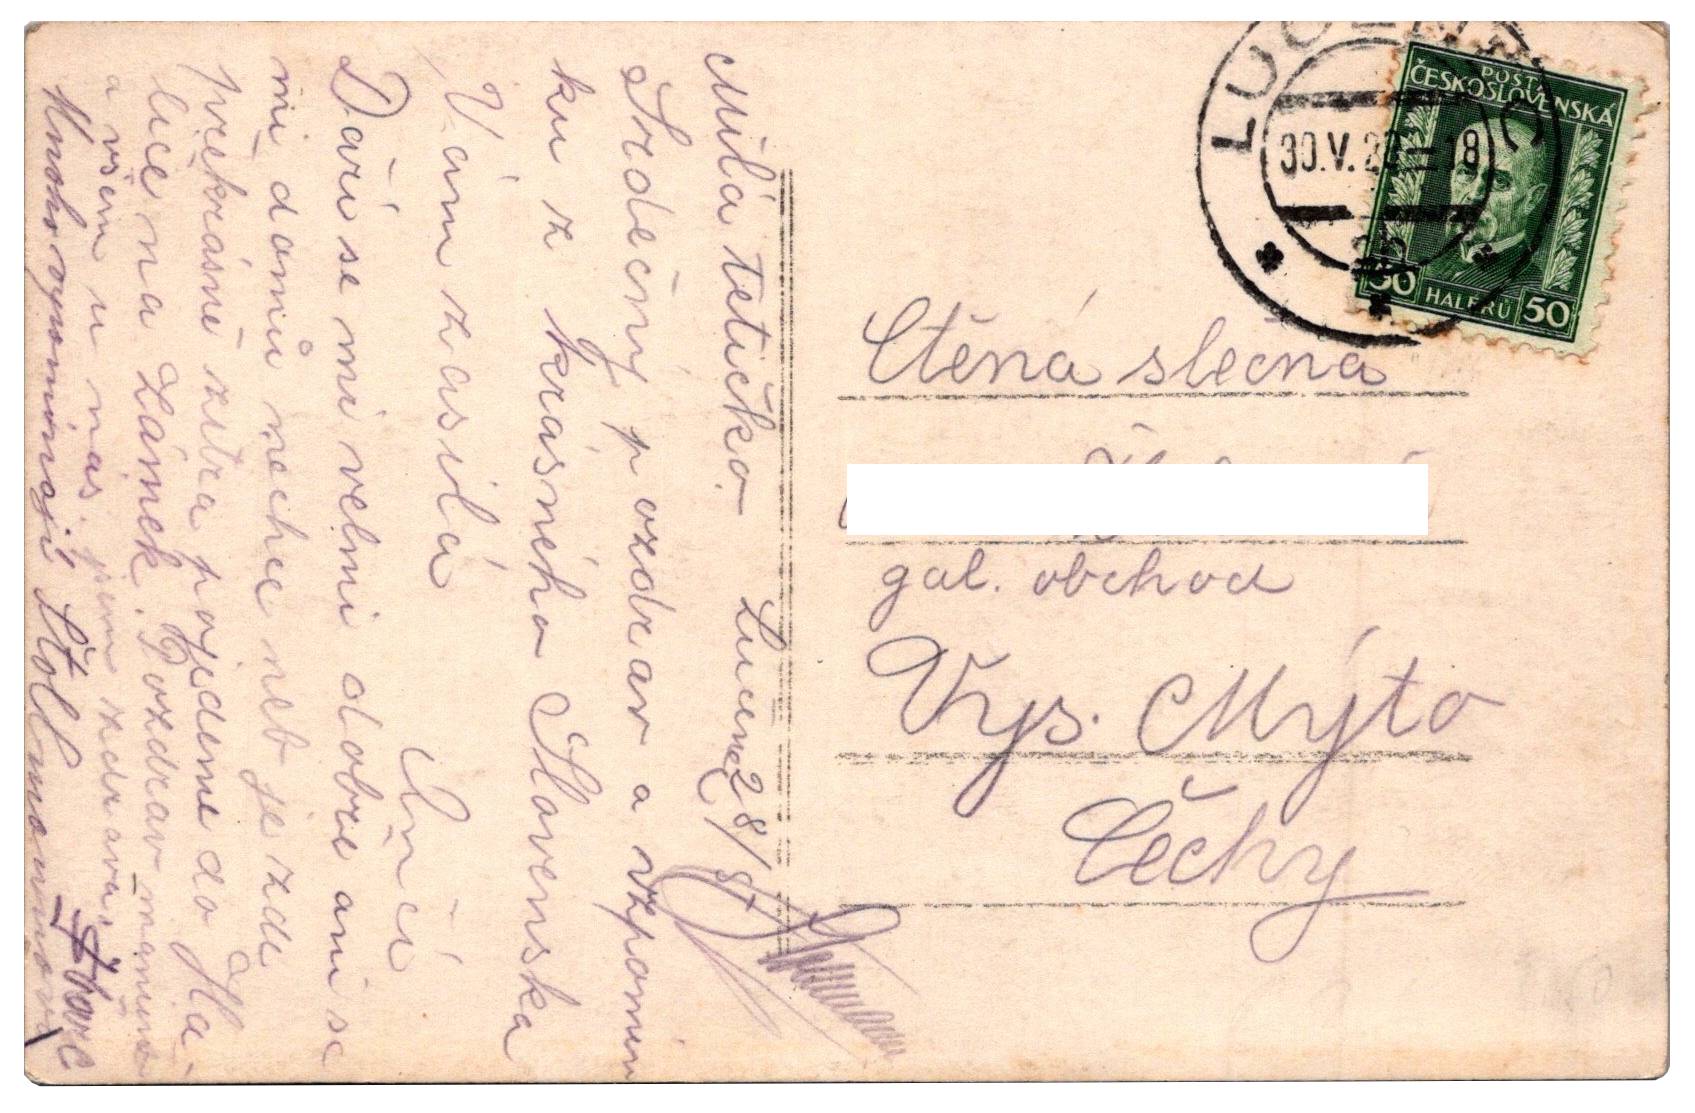 Milá tetičko.
Lučenec 28/5
Srdečný pozdrav a vzpomín
ku z krásného Slovenska
Vám zasílá
Daří se mi velmi dobře ani se
mi domů nechce neb je zde
překrásně zítra pojedeme do Ha-
liče na zámek. Pozdrav mamince
a všem u nás jsem zdráva,
Mnoho vzpomínají Štollmannovi
LUČENEC
30.V. -18
2b
POŠTA
ČESKOSLOVENSKÁ
50 HALÉŘŮ 50
Ctěná slečna
gal. obchod
Vys. Mýto
Čechy